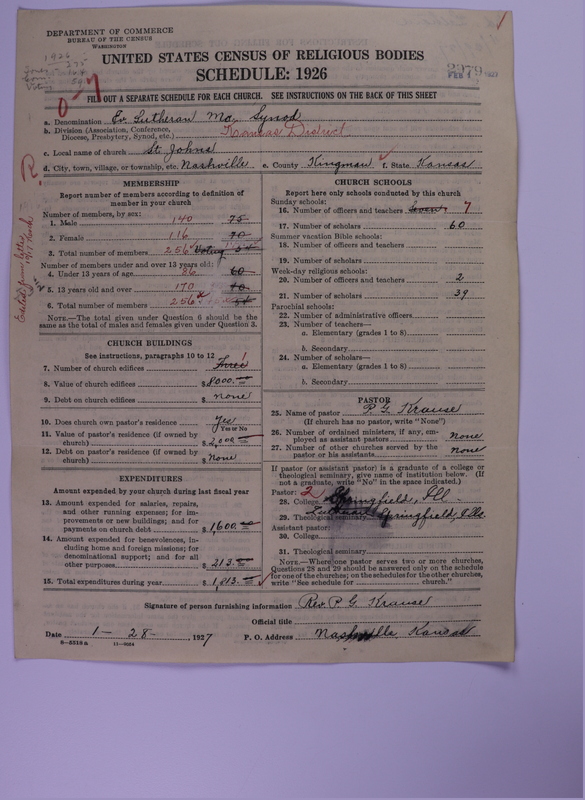 DEPARTMENT OF COMMERCE
BUREAU OF THE CENSUS
WASHINGTON
UNITED STATES CENSUS OF RELIGIOUS BODIES
SCHEDULE: 1926
FILL OUT A SEPARATE SCHEDULE FOR EACH CHURCH. SEE INSTRUCTIONS ON THE BACK OF THIS SHEET
a. Denomination Ev. Lutheran Mo. Synod
b. Division (Association, Conference, Diocese, Presbytery, Synod, etc.) Kansas District
c. Local name of church St. Johns
d. City, town, village, or township, etc. Nashville e. County Kingman f. State Kansas
MEMBERSHIP
Report number of members according to definition of member in your church
Number of members, by sex:
1. Male 140 75
2. Female 116 70
3. Total number of members 256 Voting 54
Number of members under and over 13 years old:
4. Under 13 years of age 86 60
5. 13 years old and over 170 70
6. Total number of members 256 54
NOTE.—The total given under Question 6 should be the same as the total of males and females given under Question 3.
CHURCH BUILDINGS
See instructions, paragraphs 10 to 12
7. Number of church edifices Three 1
8. Value of church edifices $ 8000.00
9. Debt on church edifices $ none
10. Does church own pastor's residence Yes
Yes or No
11. Value of pastor's residence (if owned by church) $ 2,000.00
12. Debt on pastor's residence (if owned by church) $ None
EXPENDITURES
Amount expended by your church during last fiscal year
13. Amount expended for salaries, repairs, and other running expenses; for improvements or new buildings; and for payments on church debt $ 1600.00
14. Amount expended for benevolences, including home and foreign missions; for denominational support; and for all other purposes $ 213.00
15. Total expenditures during year $ 1,813.00
CHURCH SCHOOLS
Report here only schools conducted by this church
Sunday schools:
16. Number of officers and teachers Seven 7
17. Number of scholars 60
Summer vacation Bible schools:
18. Number of officers and teachers
19. Number of scholars
Week-day religious schools:
20. Number of officers and teachers 2
21. Number of scholars 39
Parochial schools:
22. Number of administrative officers
23. Number of teachers—
a. Elementary (grades 1 to 8)
b. Secondary
24. Number of scholars—
a. Elementary (grades 1 to 8)
b. Secondary
PASTOR
25. Name of pastor P. G. Krause
(If church has no pastor, write "None")
26. Number of ordained ministers, if any, employed as assistant pastors None
27. Number of other churches served by the pastor or his assistants none
If pastor (or assistant pastor) is a graduate of a college or theological seminary, give name of institution below. (If not a graduate, write "No" in the space indicated.)
Pastor: 2
28. College Springfield, Ill
29. Theological seminary Springfield, Ills.
Assistant pastor:
30. College
31. Theological seminary
NOTE.—Where one pastor serves two or more churches, Questions 28 and 29 should be answered only on the schedule for one of the churches; on the schedules for the other churches, write "See schedule for church."
Signature of person furnishing information Rev. P. G. Krause
Official title
Date 1 - 28 - , 1927 P. O. Address Nashville, Kansas
8—5518a 11—9584